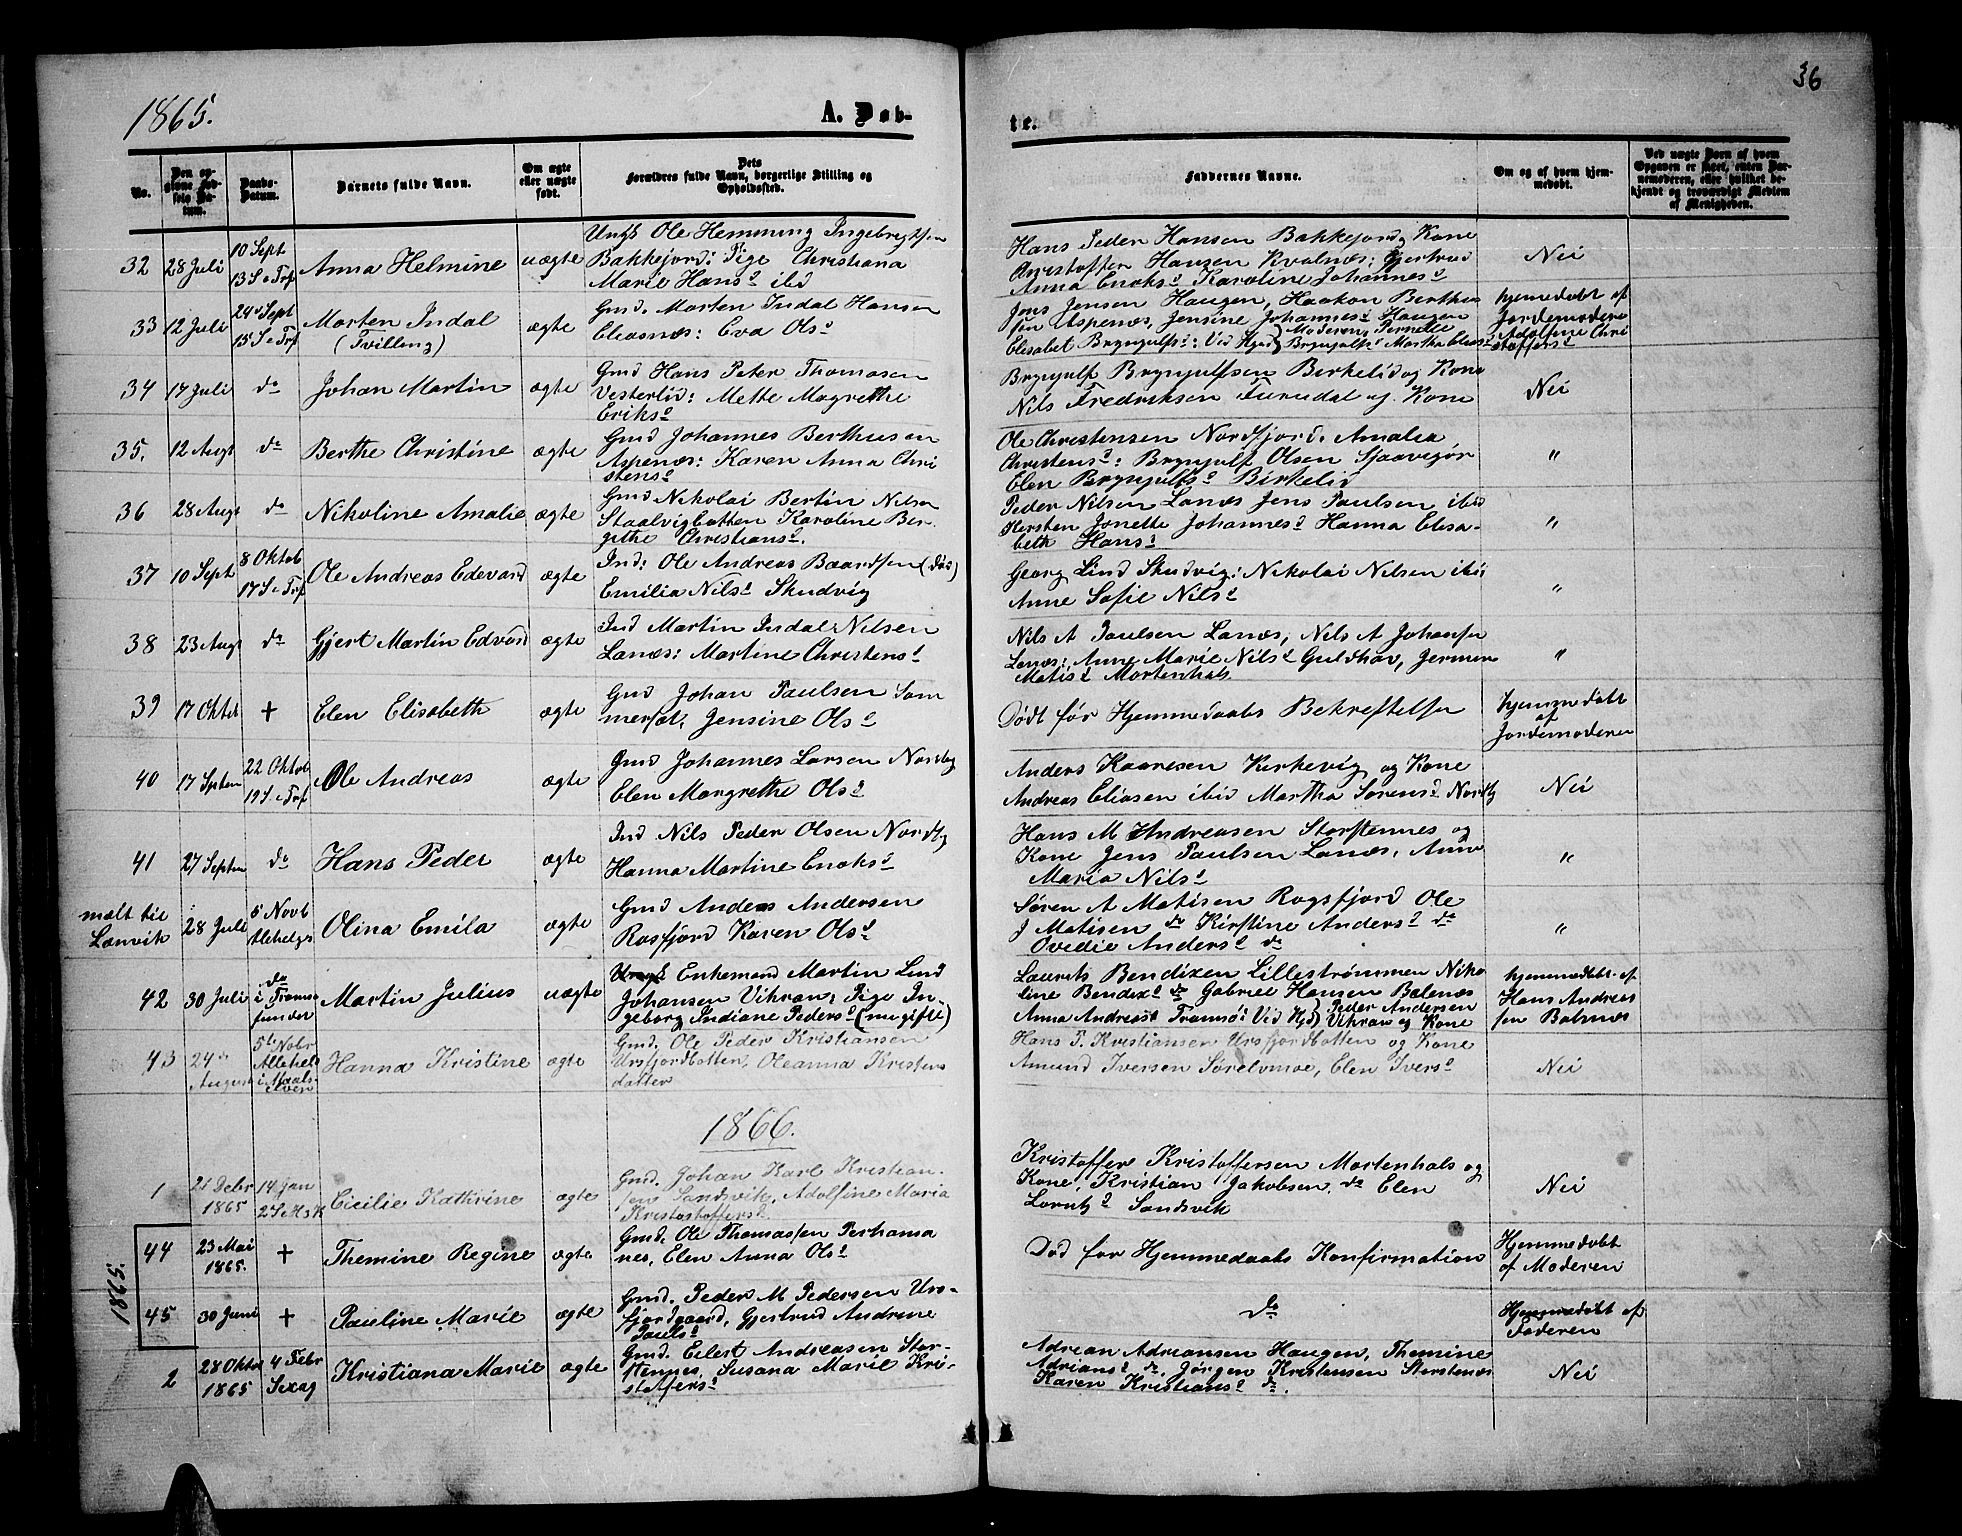 36
1865.
A. Døb-
te.
No.
Den op-
givne Fød-
sels Da-
tum.
Daabs-
Datum.
Barnets fulde Navn.
Om ægte
eller uægte
født.
Dets
Forældres fulde Navn, borgerlige Stilling og
Opholdssted.
Faddernes Navne.
Om og af hvem hjem-
medøbt.
Ved uægte Børn af hvem
Opgaven er skeet, enten Bar-
nemoderen, eller hvilket be-
kjendt og troværdigt Medlem
af Menigheden.
32 28 Juli 10 Sept 13 S e Trf Anna Helmine uægte
Ungk Ole Hemming Ingebrigtsen
Bakkejord: Pige Christiana
Marie Hansd ibd
Hans Peder Hansen Bakkejord og Kone
Christoffer Hansen Kvalnes: Gjertrud
Anna Enoksd Karoline Johannesd
Nei
33 12 Juli 24d Sept 15 S e Trf Morten Indal
(Tvilling)
ægte
Gmd. Morten Indal Hansen
Eliasnæs: Eva Olsd
Jens Jensen Haugen, Haakon Berthu
sen Aspenæs, Jensine Johannesd Haugen
Elisabet Brynjulfsd: Ved Hjmd } Moderen, Pernelle
Brynjulfsd Martha Eliasd
hjemmedøbt af
Jordemoderen
Adolfine Chri
stoffersd
34 17 Juli do Johan Martin ægte
Gmd Hans Peter Thomasen
Vesterlid: Mette Magrethe
Eriksd
Brynjulf Brynjulfsen Birkelid og Kone
Nils Fredriksen Furudal og Kone
Nei
35. 12 Augt do Berthe Christine ægte
Gmd Johannes Berthusen
Aspenæs: Karen Anna Chri
stensd
Ole Christensen Nordfjord: Amalia
Christensd: Brynjulf Olsen Sjaavigør
Elen Brynjulfsd Birkelid
"
36 28 Augt do Nikoline Amalie ægte
Gmd Nikolai Bertin Nilsen
Staalvigbotten Karoline Ber.
githe Christiansd.
Peder Nilsen Lanæs Jens Paulsen ibid
Kersten Jonette Johannesd Hanna Elisa-
beth Hansd
"
37 10 Sept 8 Oktob 17 S e Trf Ole Andreas Edevard ægte
Ind: Ole Andreas Baardsen (død)
Emilia Nilsd Skudvig
Georg Lind Skudvig: Nikolai Nilsen ibi:
Anne Sofie Nilsd
"
38 23 Augt do Gjert Martin Edvard ægte
Ind Martin Indal Nilsen
Lanæs: Martine Christensd
Nils A Paulsen Lanæs, Nils A Johansen
Lanæs: Anne Marie Nilsd Guldhav, Jermine
Matisd Mortenhals
"
39 17 Oktet + Elen Elisabeth ægte
Gmd Johan Paulsen Som
mersæt, Jensine Olsd
Dødt før Hjemmedaabs Bekreftelsen
hjemmedøbt
af
Jordemoderen
40 17 Septem 22 Oktob 19 S. e Trf Ole Andreas ægte
Gmd Johannes Larsen Nordby
Elen Margrethe Olsd
Anders Kaaresen Kirkevig og Kone
Andreas Eliasen ibid Martha Sørensd Nordby
Nei
41 27 Septem do Hans Peder ægte
Ind Nils Peder Olsen Nordby
Hanna Martine Enoksd
Hans M Andreasen Storstennes og
Kone Jens Paulsen Lanæs, Anne
Maria Nilsd
"
mælt til
Lanvik
28 Juli 5 Novb Alehelgs Olina Emila ægte
Gmd Anders Andersen
Rosfjord Karen Olsd
Søren A Matisen Rogsfjord Ole
J Matisen do Kirstine Andersd do
Ovedie Andersd do
"
42 30 Juli do
i Tromsø
sundet
Martin Julius uægte
Ungk Enkemand Martin Lind
Johansen Vikran: Pige In-
geborg Indiane Pedersd (nu gifte)
Laurits Bendixen Lillestrømmen Niko
line Bendixd do Gabriel Hansen Balsnæs
Anna Andreasd Tromsø: Ved Hjd } Peder Andersen
Vikran og Kone
hjemmedøbt af
Hans Andrea
sen Balsnæs
43 24de
August
5te Nobr
Allehel
i Maals-
elven
Hanna Kristine ægte
Gmd. Ole Peder Kristiansen
Ursfjordbotten, Oleanna Kristens
datter
Hans P. Kristiansen Ursfjordbotten og Kone
Amund Iversen Sørelvmoe, Elen Iversd
Nei
1866.
1 21 Debr
1865
14 Jan
2 S e H.3.K
Cicilie Kathrine ægte
Gmd. Johan Karl Kristian-
sen Sandvik, Adolfine Maria
Kristostoffersd
Kristoffer Kristoffersen Mortenhals og
Kone, Kristian Jakobsen, do Elen
Lorntzd Sandvik
Nei
1865.
44 23 Mai
1865.
+ Themine Regine ægte
Gmd. Ole Thomassen Perhansa
nes, Elen Anna Olsd
Død før Hjemmedaabs Konfirmation
Hjemmedøbt
af Moderen
45 30 Juni + Pauline Marie ægte
Gmd. Peder M Pedersen Urs-
fjordgaard, Gjertrud Andrine
Paulsd
do
Hjemmedøbt af
Faderen
2 28 Oktbr
1865
4 Febr
Sexag
Kristiana Marie ægte
Gmd. Eilert Andreasen Stor-
stennes, Susana Marie Kri-
stoffersd
Adrian Adriansen Haugen, Themine
Adriansd do Jørgen Kristensen Storstenes
Karen Kristiansd do.
Nei